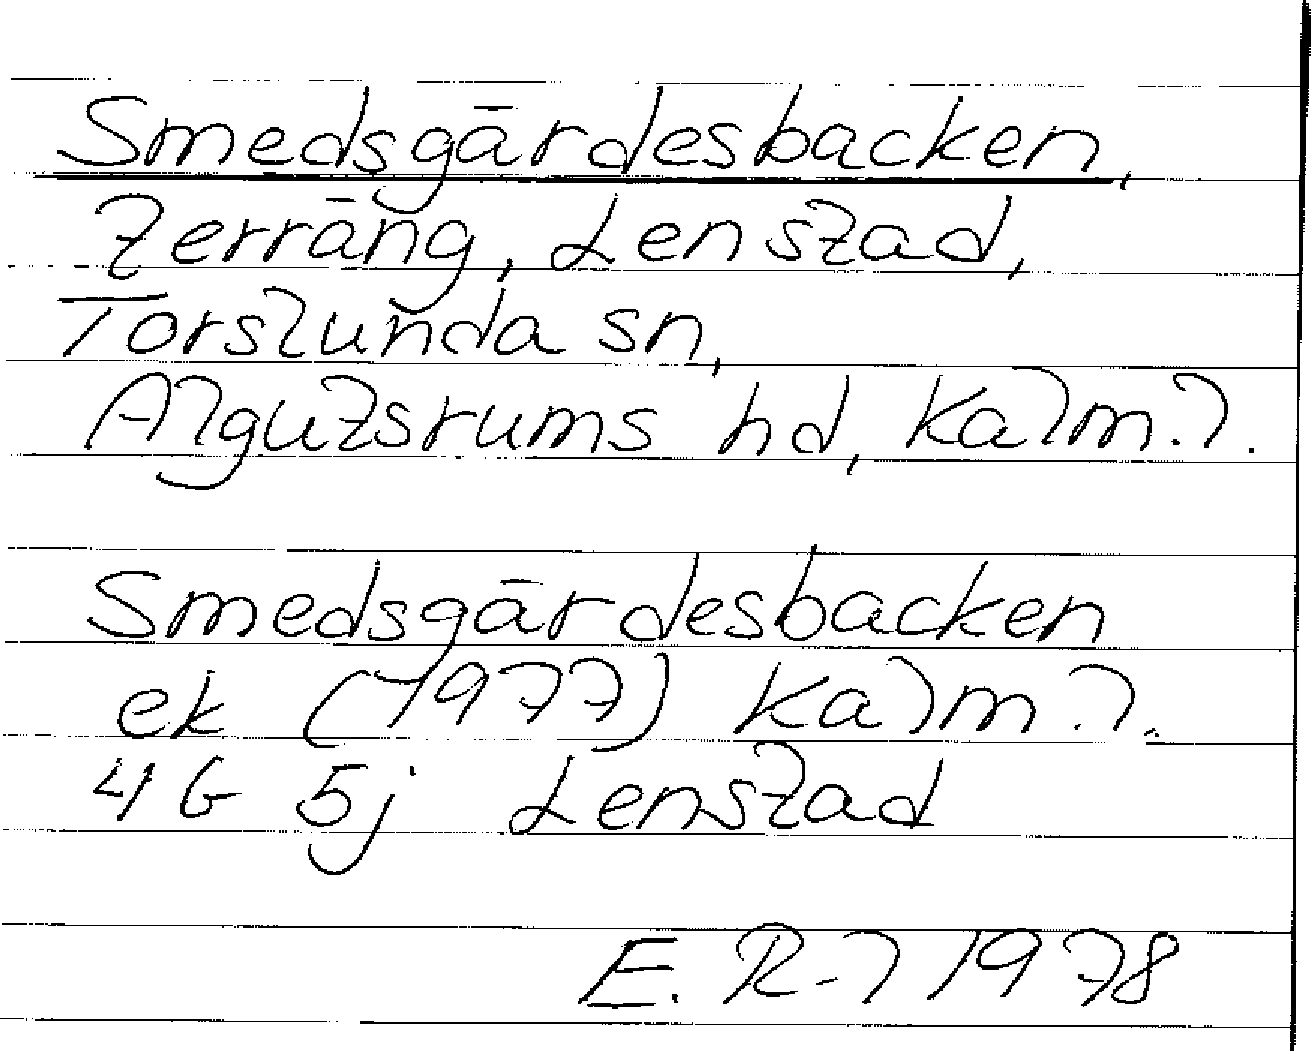 Smedsgärdesbacken,
terräng, Lenstad,
Torslunda sn,
Algutsrums hd, Kalm.l.
Smedsgärdesbacken
ek (1977) Kalm.l.
4G 5j Lenstad
E.R-l 1978